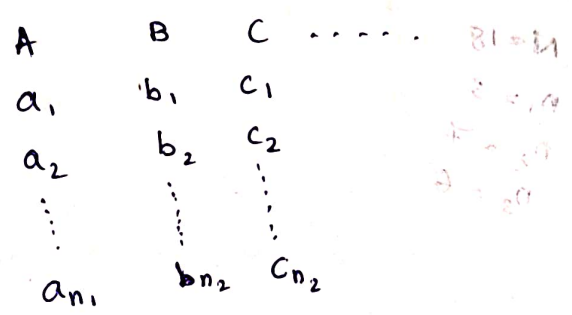 A B C .....
a₁ b₁ c₁
a₂ b₂ c₂
aₙ₁ bₙ₂ Cₙ₂